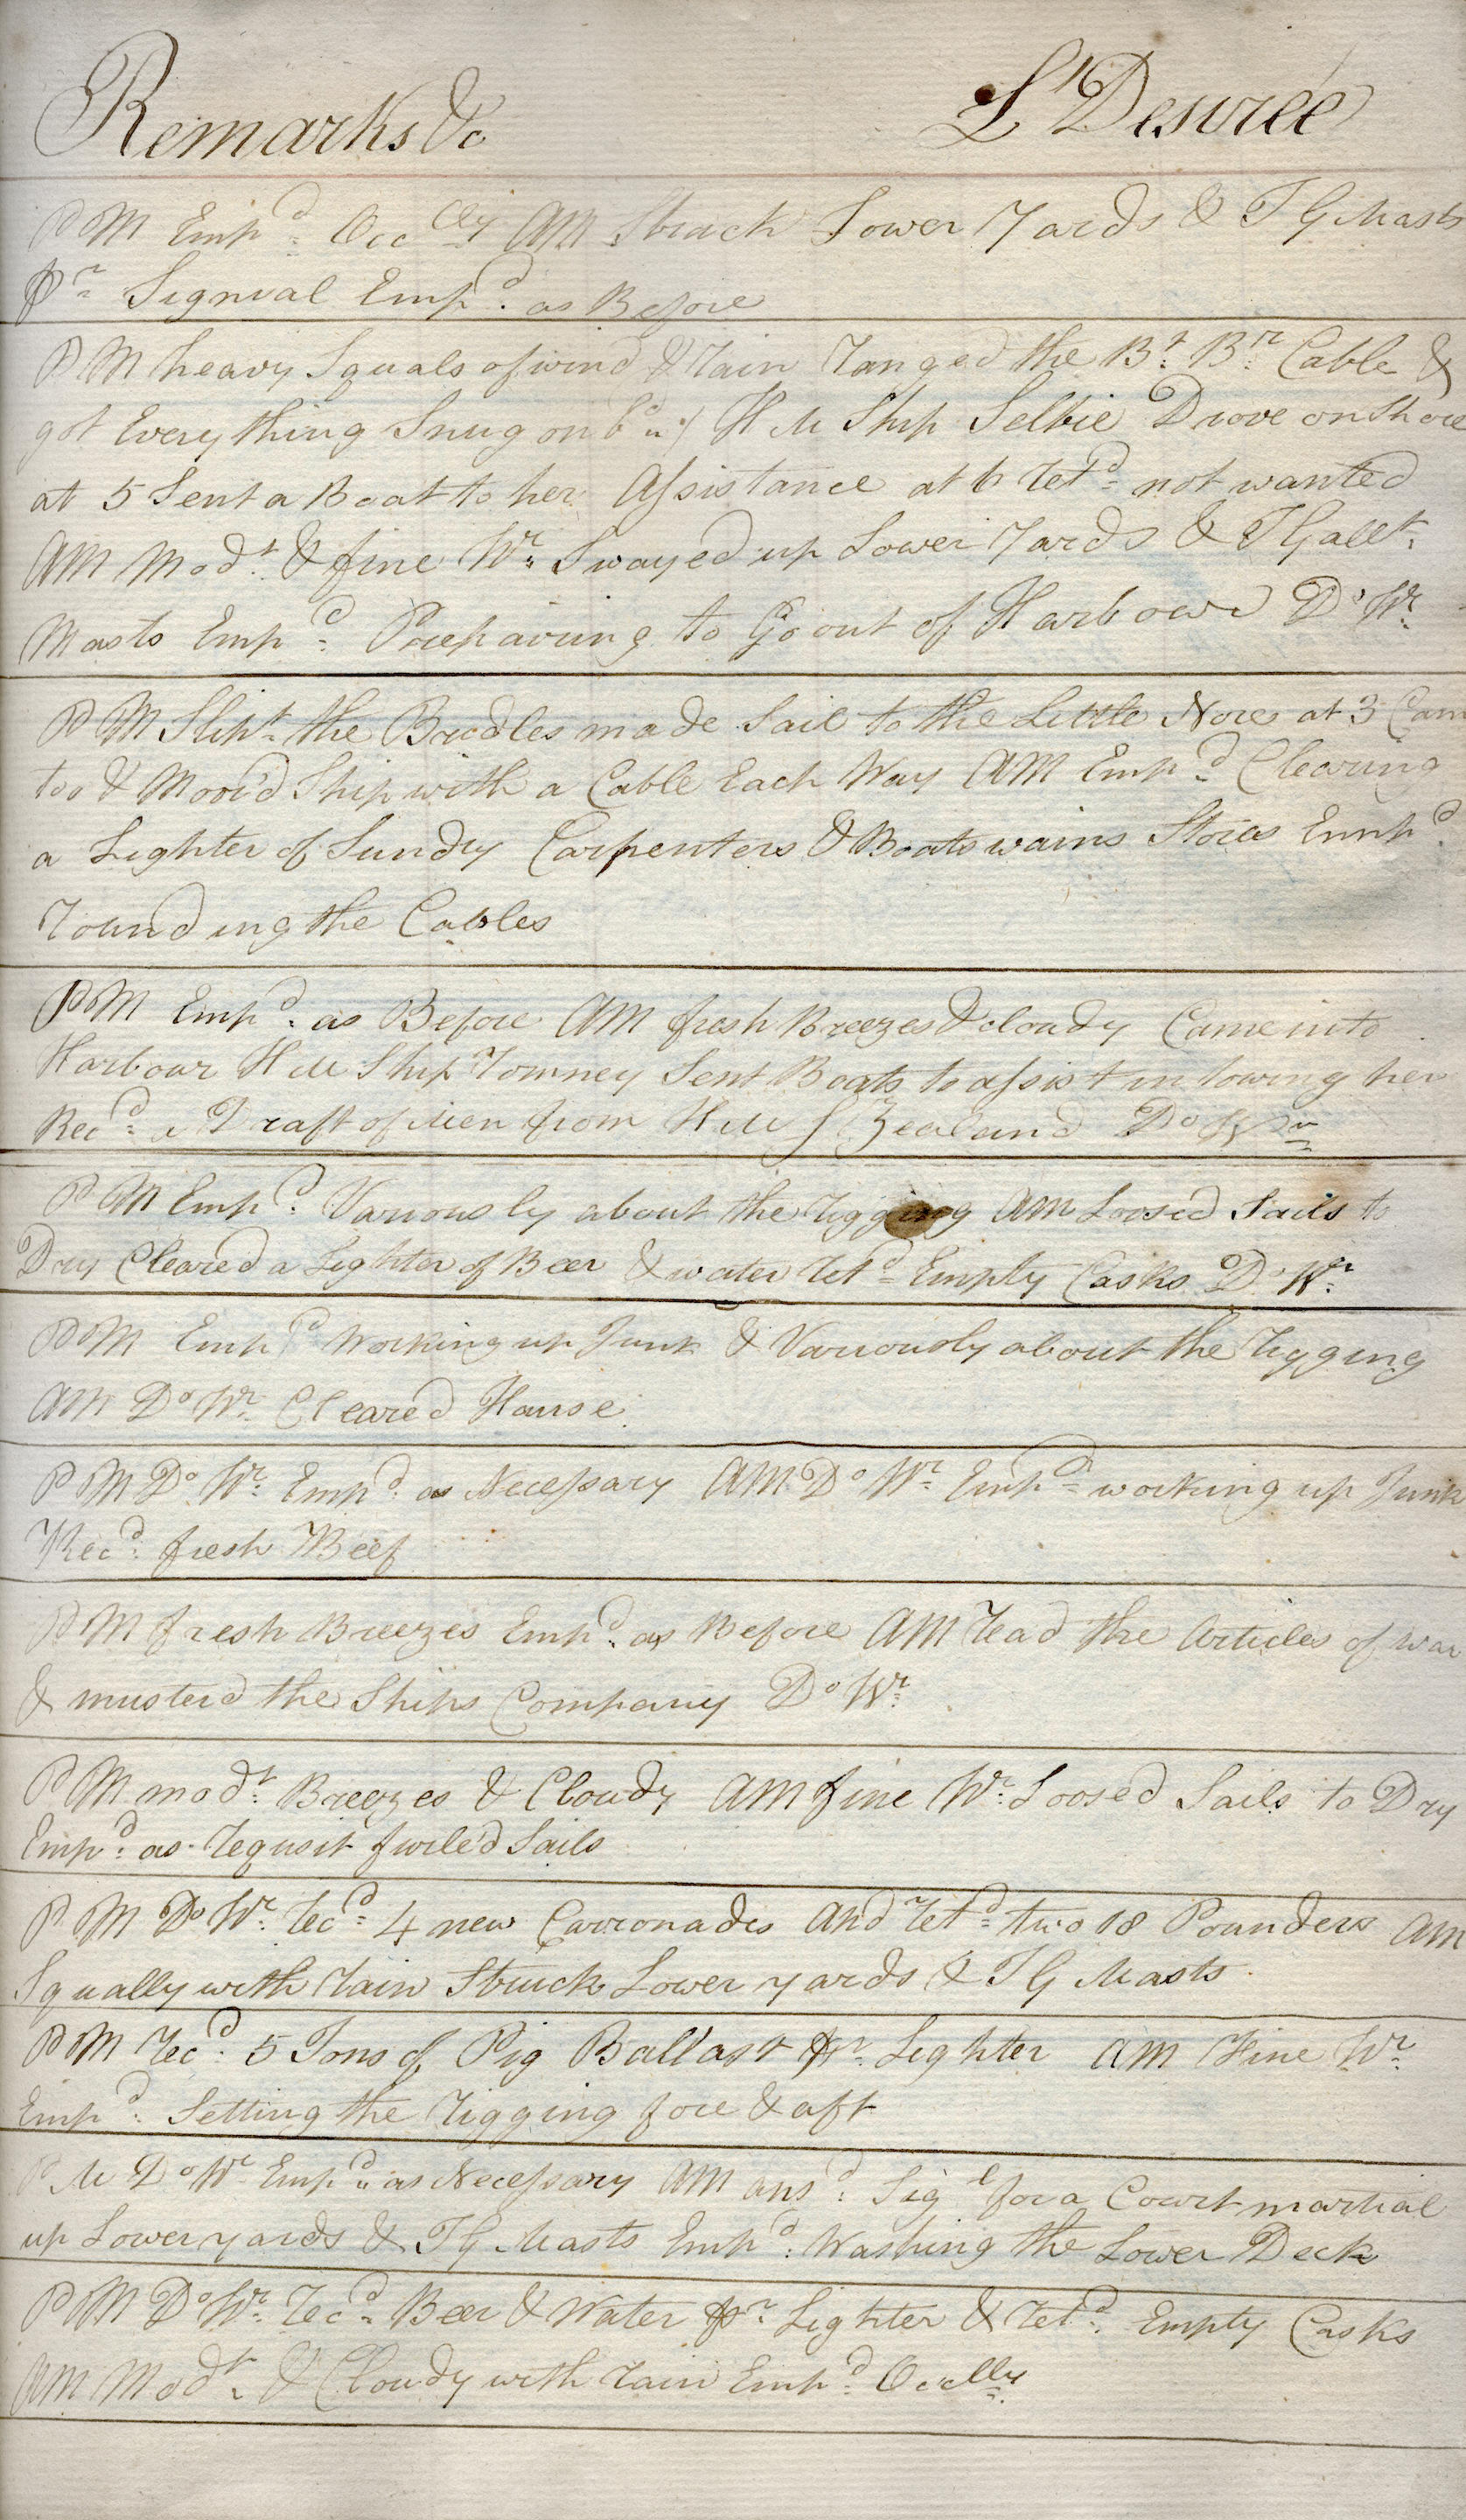 Remarks &c L'Desirée
PM Empd. Occlly AM Struck Lower Yards & T G Masts
Pr Signal Empd. as Before
PM heavy Squals of wind & rain ranged the Bt. Br. Cable &
got Every thing Snug on bd. H M Ship Selbie Drove on Shore
at 5 Sent a Boat to her Assistance at 6 retd. not wanted
AM Modt. & fine Wr. Swayed up Lower Yards & T Gallt.
Masts Empd. Prepairing to Go out of Harbour Do Wr.
PM Slipt. the Bridles made Sail to the Little Nore at 3 Came
too & Moor'd Ship with a Cable Each Way AM Empd. Clearing
a Lighter of Sundry Carpenters & Boatswains Stores Empd.
rounding the Cables
PM Empd. as Before AM fresh Breezes & cloudy Came into
Harbour H M Ship Romney Sent Boats to assist in towing her
Recd. a Draft of Men from H M S Zealand Do Wr
PM Empd. Variously about the rigging AM Loosed Sails to
Dry Cleared a Lighter of Beer & water retd. Empty Casks Do Wr.
PM Empd Working up Junk & Variously about the rigging
AM Do Wr. Cleared Hause
PM Do Wr. Empd. as Necessary AM Do Wr. Empd. working up Junk
Recd. fresh Beef
PM fresh Breezes Empd. as Before AM read the Articles of War
& musterd the Ships Company Do Wr.
PM modt. Breezes & Cloudy AM fine Wr. Loosed Sails to Dry
Empd. as requsit furled Sails
PM Do Wr. recd. 4 new Carronades and retd. two 18 Pounders AM
Squally with rain Struck Lower yards & T G Masts
PM recd. 5 Tons of Pig Ballast Pr. Lighter AM Fine Wr.
Empd. Setting the rigging fore & aft
PM Do Wr Empd. as Necessary AM ansd. Sigl for a Court martial
up Lower yards & T G Masts Empd. Washing the Lower Deck
PM Do Wr. recd. Beer & Water Pr. Lighter & retd. Empty Casks
AM Modt. & Cloudy with rain Empd. Occlly